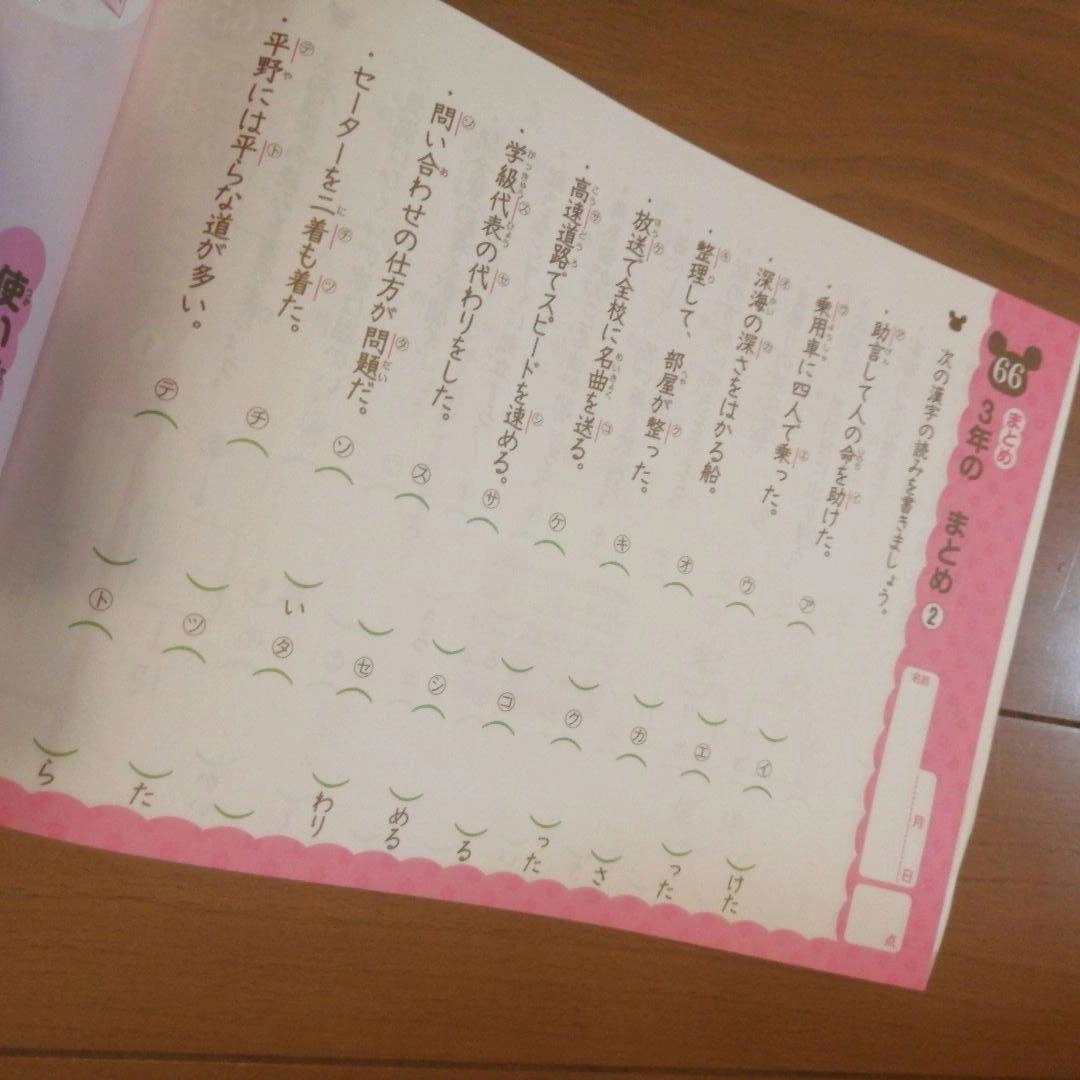 66 まとめ 3年の まとめ ②
名前
月 日
点
次の漢字の読みを書きましょう。
・助言して人の命を助けた。
・乗用車に四人で乗った。
・深海の深さをはかる船。
・整理して、部屋が整った。
・放送で全校に名曲を送る。
・高速道路でスピードを速める。
・学級代表の代わりをした。
・問い合わせの仕方が問題だ。
・セーターを二着も着た。
・平野には平らな道が多い。
㋐( ) ㋑( )けた
㋒( ) ㋓( )った
㋔( ) ㋕( )さ
㋖( ) ㋗( )った
㋘( ) ㋙( )る
㋚( ) ㋛( )める
㋜( ) ㋝( )わり
㋞( )い ㋟( )
㋠( ) ㋡( )た
㋢( ) ㋣( )ら